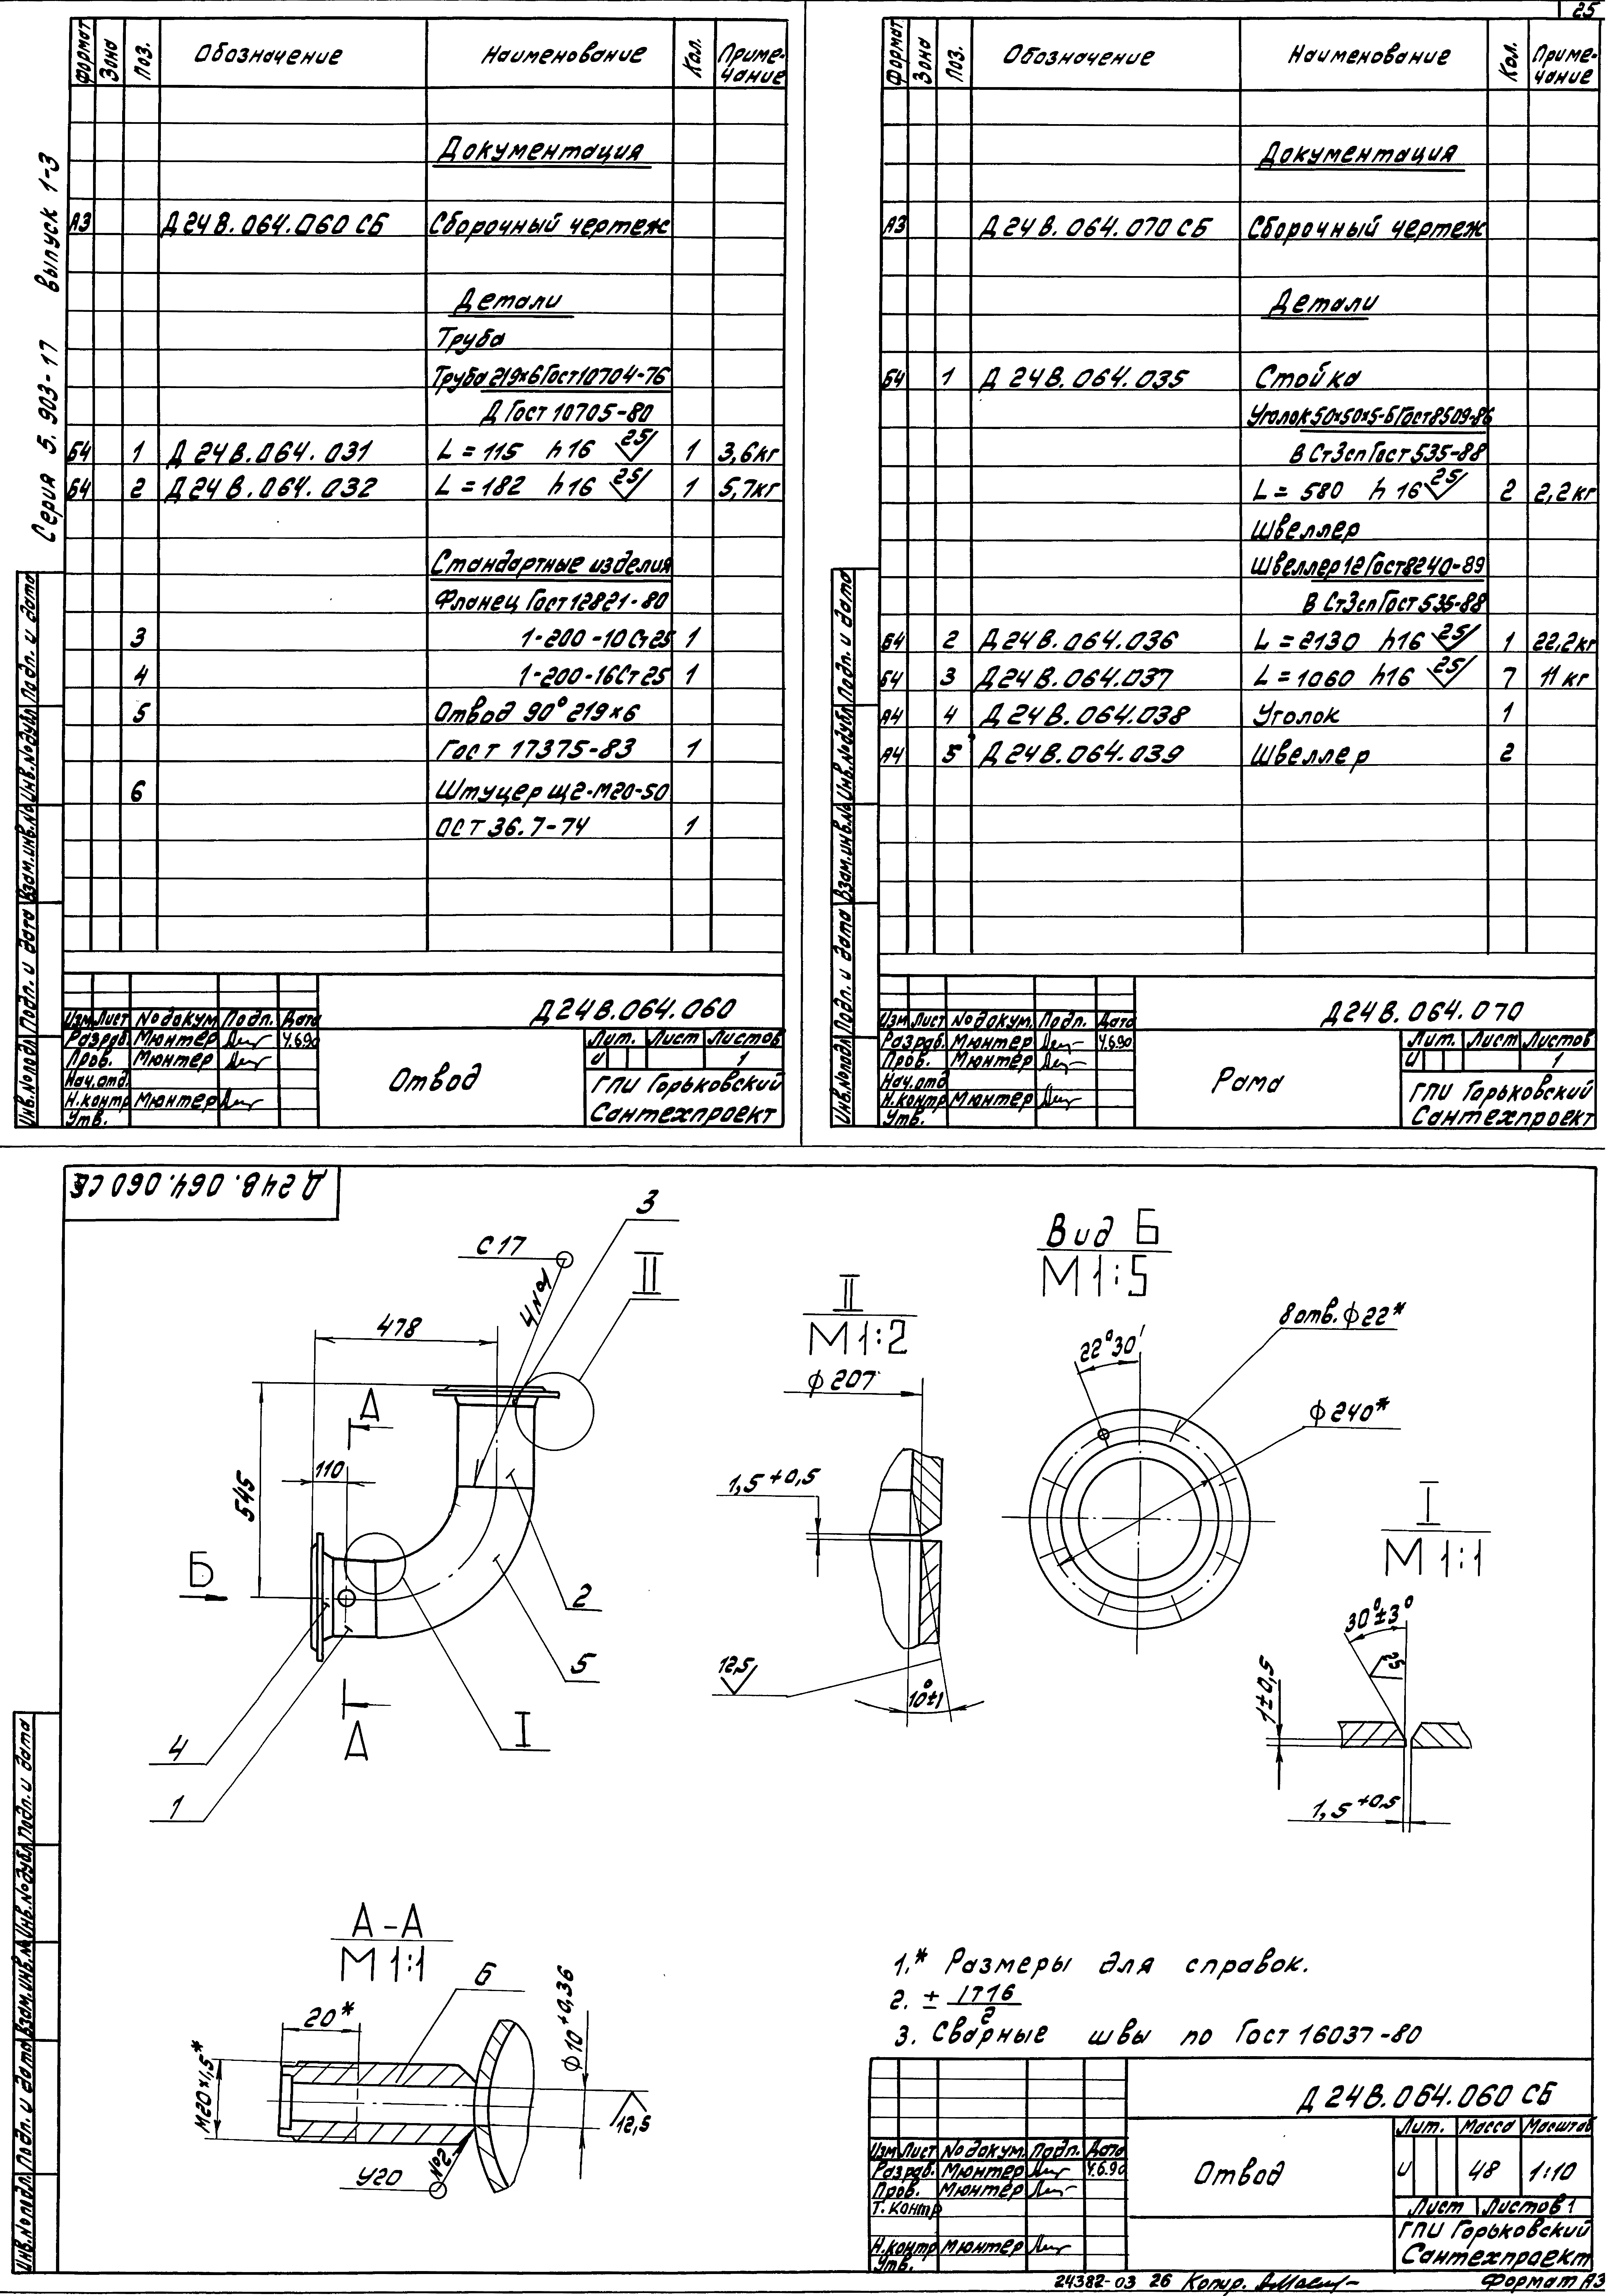 25
Серия 5.903-17 выпуск 1-3
Формат Зона Поз. Обозначение Наименование Кол. Приме-
чание
Документация
А3 Д24В.064.060 СБ Сборочный чертеж
Детали
Труба
Труба 219×6 Гост 10704-76
Д Гост 10705-80
Б4 1 Д24В.064.031 L = 115 h16 25 1 3,6кг
Б4 2 Д24В.064.032 L = 182 h16 25 1 5,7кг
Стандартные изделия
Фланец Гост 12821-80
3 1-200-10 Ст25 1
4 1-200-16 Ст25 1
5 Отвод 90° 219×6
Гост 17375-83 1
6 Штуцер Щ2-М20-50
ОСТ 36.7-74 1
Инв.№подл. Подп. и дата Взам.инв.№ Инв.№дубл. Подп. и дата
Д24В.064.060
Изм Лист №докум. Подп. Дата
Разраб. Мюнтер 4.6.90
Пров. Мюнтер
Нач.отд.
Н.контр Мюнтер
Утв.
Отвод
Лит. Лист Листов
И 1
ГПИ Горьковский
Сантехпроект
Формат Зона Поз. Обозначение Наименование Кол. Приме-
чание
Документация
А3 Д24В.064.070 СБ Сборочный чертеж
Детали
Б4 1 Д24В.064.035 Стойка
Уголок 50×50×5-Б Гост 8509-86
В Ст3сп Гост 535-88
L = 580 h16 25 2 2,2кг
Швеллер
Швеллер 12 Гост 8240-89
В Ст3сп Гост 535-88
Б4 2 Д24В.064.036 L = 2130 h16 25 1 22,2кг
Б4 3 Д24В.064.037 L = 1060 h16 25 7 11кг
А4 4 Д24В.064.038 Уголок 1
А4 5 Д24В.064.039 Швеллер 2
Инв.№подл. Подп. и дата Взам.инв.№ Инв.№дубл. Подп. и дата
Д24В.064.070
Изм Лист №докум. Подп. Дата
Разраб. Мюнтер 4.6.90
Пров. Мюнтер
Нач.отд
Н.контр Мюнтер
Утв.
Рама
Лит. Лист Листов
И 1
ГПИ Горьковский
Сантехпроект
Д24В.064.060 СБ
С17
4 №1
3
II
478
А
110
545
Б
2
5
I
А
4
1
II
М1:2
ϕ207
1,5+0,5
12,5
10°±1
Вид Б
М1:5
22°30′
8 отв. ϕ22*
ϕ240*
I
М1:1
30°±3°
25
1±0,5
1,5+0,5
А-А
М1:1
6
20*
М20×1,5*
ϕ10+0,36
12,5
У20
№2
1.* Размеры для справок.
2. ± IT16
2
3. Сварные швы по Гост 16037-80
Инв.№подл. Подп. и дата Взам.инв.№ Инв.№дубл. Подп. и дата
Д24В.064.060 СБ
Изм Лист №докум. Подп. Дата
Разраб. Мюнтер 4.6.90
Пров. Мюнтер
Т.контр
Н.контр Мюнтер
Утв.
Отвод
Лит. Масса Масштаб
И 48 1:10
Лист Листов 1
ГПИ Горьковский
Сантехпроект
24382-03 26 Копир. Формат А3